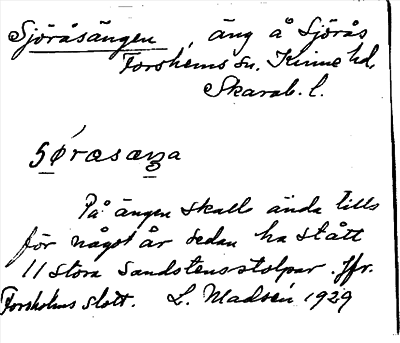 Sjöråsängen, äng å Sjörås
Forshems sn. Kinne hd.
Skarab. l.
På ängen skall ända tills
för något år sedan ha stått
11 stora sandstensstolpar. Jfr.
Forsholms slott. L. Madsén 1929